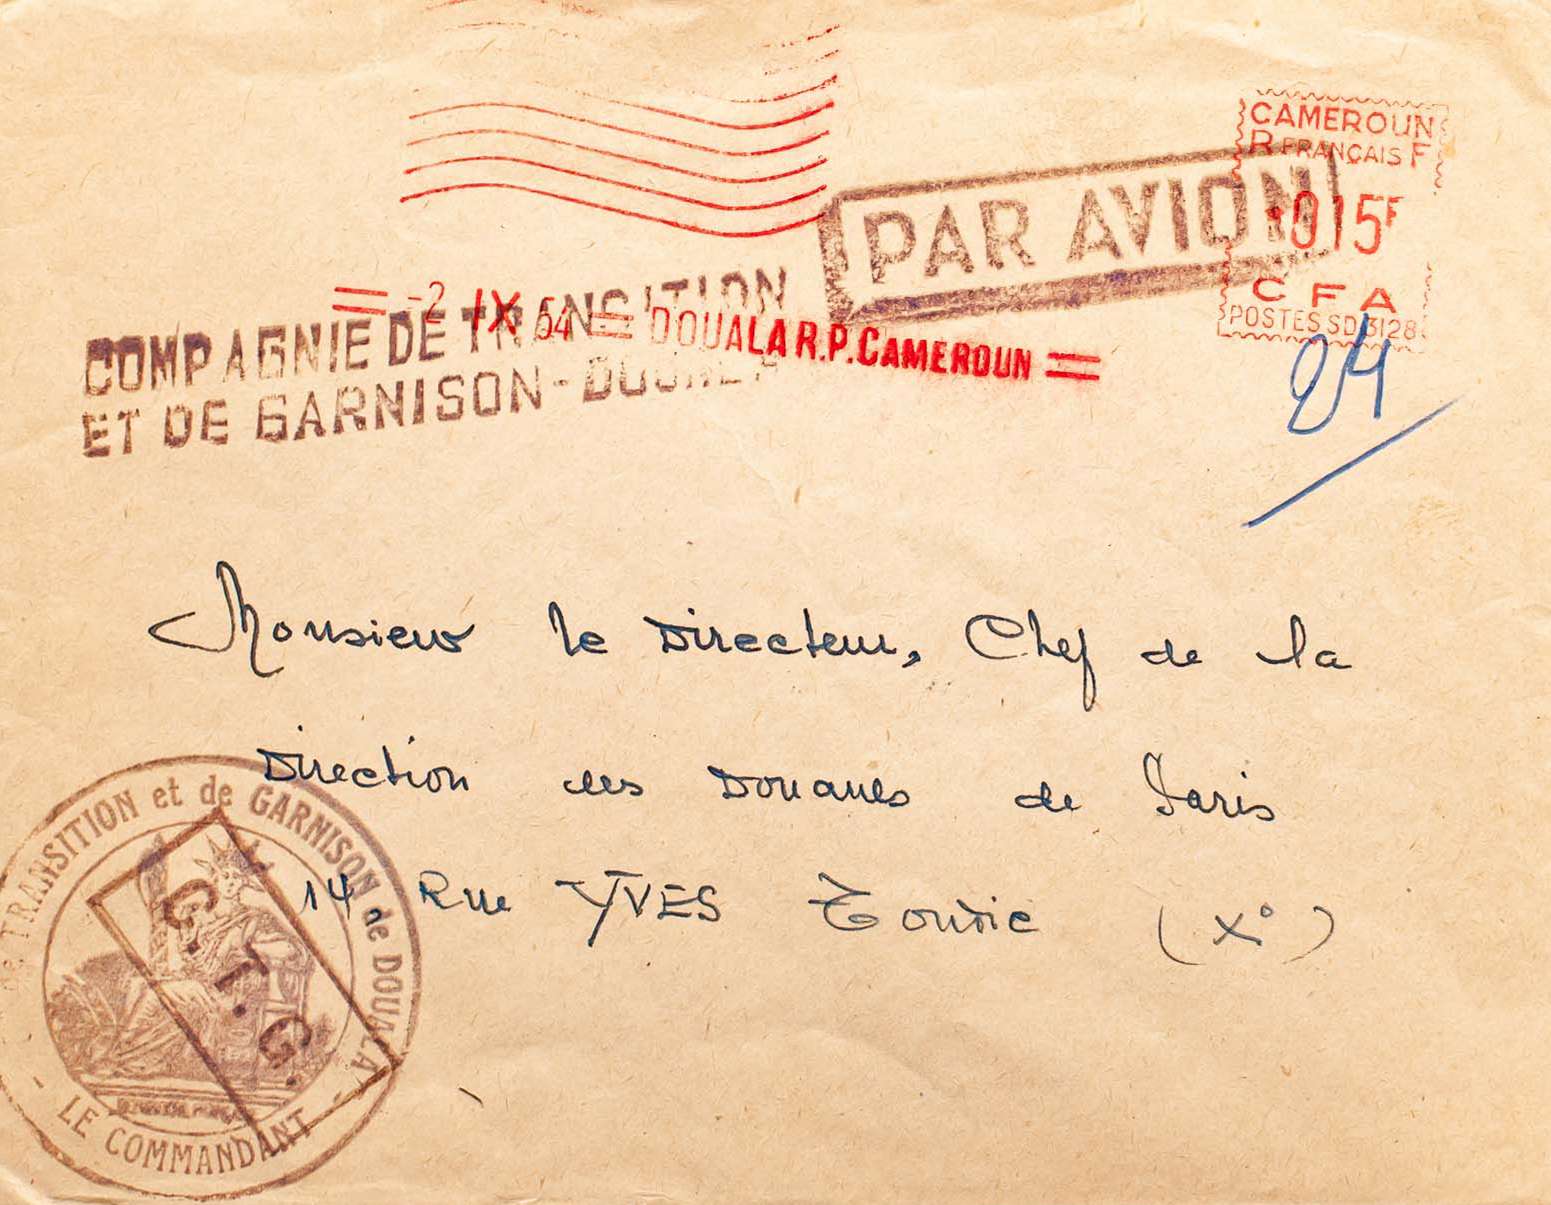 CAMEROUN
R FRANÇAIS F
015F
CFA
POSTES SD3128
PAR AVION
= -2 IX 54 = DOUALA R.P. CAMEROUN =
COMPAGNIE DE TRANSITION
ET DE GARNISON - DOUALA
24
Monsieur le Directeur, Chef de la
Direction des Douanes de Paris
14, Rue YVES Toudic (X°)
de TRANSITION et de GARNISON de DOUALA
C.T.G.
- LE COMMANDANT -